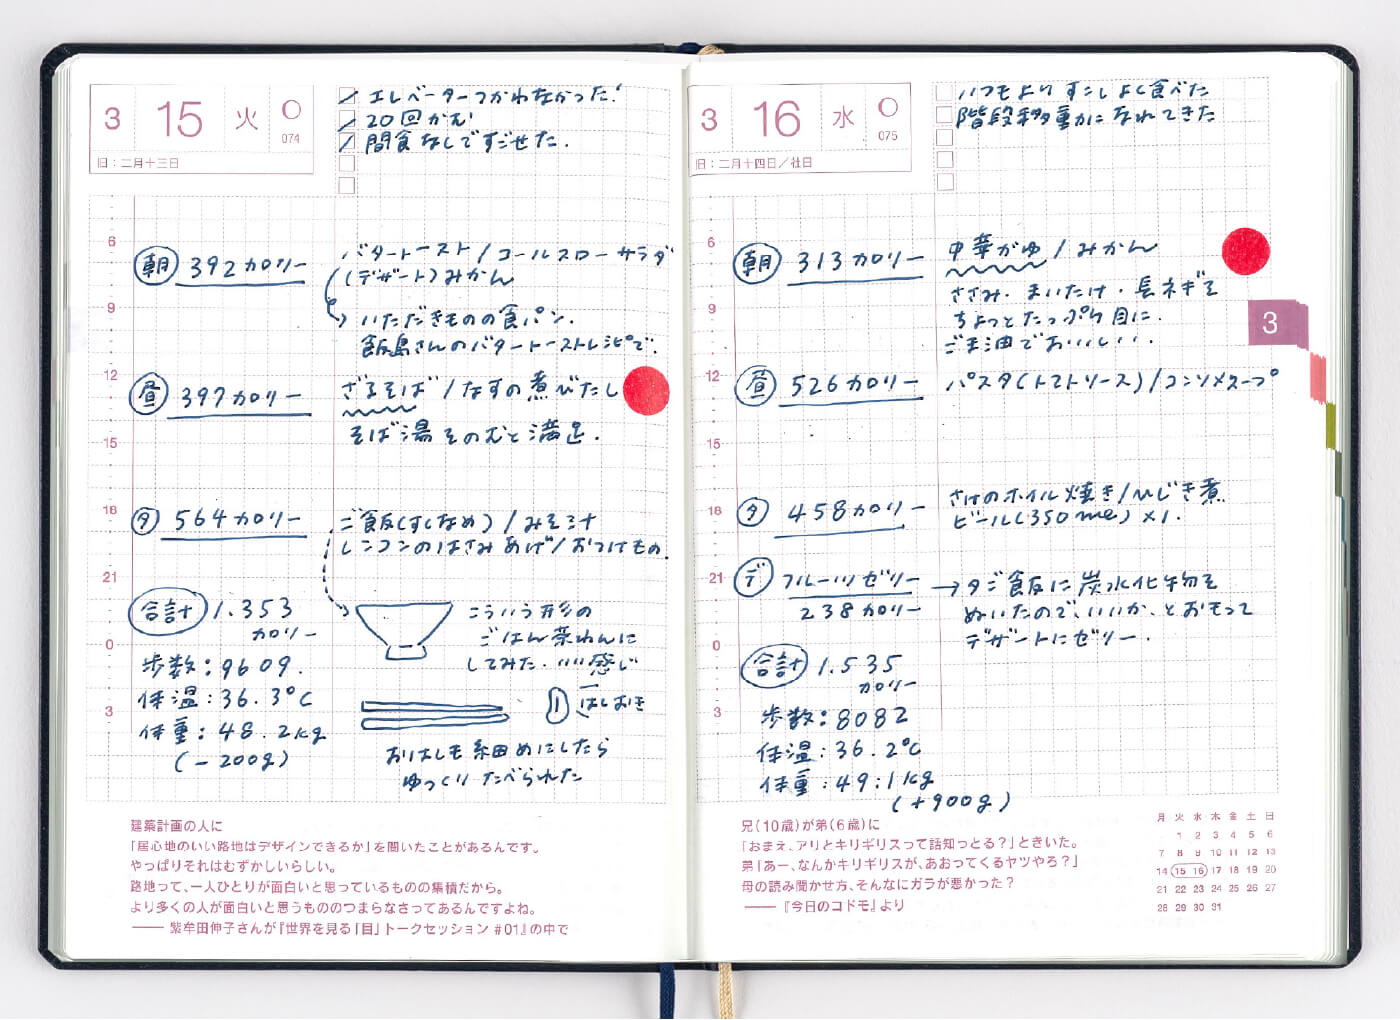 3 15 火
074
旧：二月十三日
エレベーターつかわなかった！
20回かむ
間食なしですごせた．
6
朝 392カロリー
バタートースト/コールスローサラダ
(デザート)みかん
9
いただきものの食パン．
飯島さんのバタートーストレシピで．
12
昼 397カロリー
ざるそば/なすの煮びたし
15
そば湯そのむと満足．
18
夕 564カロリー
ご飯(すくなめ)/みそ汁
レンコンのはさみあげ/おつけもの．
21
合計 1.353
カロリー
こういう形の
ごはん茶わんに
してみた．いい感じ
0
歩数：9609．
体温：36.3℃
はしおき
3
体重：48.2kg
(－200g)
おはしも細めにしたら
ゆっくりたべられた
建築計画の人に
「居心地のいい路地はデザインできるか」を聞いたことがあるんです。
やっぱりそれはむずかしいらしい。
路地って、一人ひとりが面白いと思っているものの集積だから。
より多くの人が面白いと思うもののつまらなさってあるんですよね。
── 紫牟田伸子さんが『世界を見る「目」トークセッション #01』の中で
3 16 水
075
旧：二月十四日／社日
いつもよりすこしよく食べた
階段移動になれてきた
6
朝 313カロリー
中華がゆ/みかん
ささみ．まいたけ．長ネギを
9
ちょっとたっぷり目に．
ごま油でおいしい．
3
12
昼 526カロリー
パスタ(トマトソース)/コンソメスープ
15
18
夕 458カロリー
さけのホイル焼き/ひじき煮
ビール(350ml)×1．
21
デ フルーツゼリー
238カロリー
→夕ご飯に炭水化物を
ぬいたので、いいか、とおもって
デザートにゼリー．
0
合計 1.535
カロリー
3
歩数：8082
体温：36.2℃
体重：49.1kg
(＋900g)
兄（10歳）が弟（6歳）に
「おまえ、アリとキリギリスって話知っとる？」ときいた。
弟「あー、なんかキリギリスが、あおってくるヤツやろ？」
母の読み聞かせ方、そんなにガラが悪かった？
── 『今日のコドモ』より
月 火 水 木 金 土 日
1 2 3 4 5 6
7 8 9 10 11 12 13
14 15 16 17 18 19 20
21 22 23 24 25 26 27
28 29 30 31